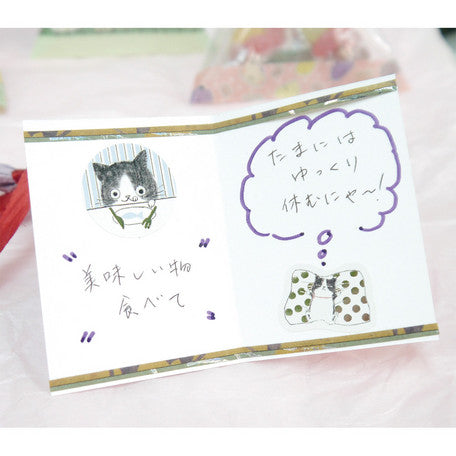 美味しい物
食べて
たまには
ゆっくり
休むにゃ〜!